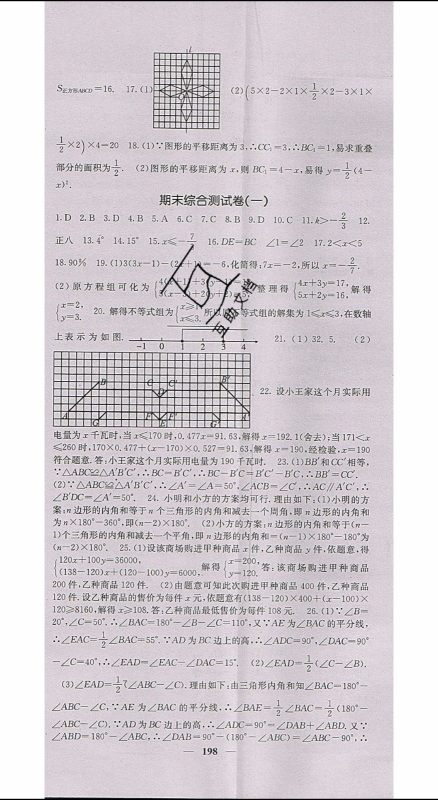 S正方形ABCD=16.  17.(1)  (2)(5×2-2×1×1/2×2-3×1×
1/2×2)×4=20  18.(1)∵图形的平移距离为3,∴CC₁=3,∴BC₁=1,易求重叠
部分的面积为1/2.  (2)图形的平移距离为x,则BC₁=4-x,易得y=1/2(4-
x)².
期末综合测试卷(一)
1.D  2.B  3.D  4.B  5.A  6.C  7.C  8.B  9.D  10.C  11.k>-2/3  12.
正八  13.4°  14.15°  15.x≤-7/4  16.DE=BC  ∠1=∠2  17.2<x<5
18.90%  19.(1)3(3x-1)-(2x+1)=-6,化简得:7x=-2,所以x=-2/7.
(2)原方程组可化为 整理得{4x+3y=17, 5x+2y=16, 解得
{x=2, y=3.  20.解得不等式组为{x≥1, x≤3. 所以 等式组的解集为1≤x≤3,在数轴
上表示为如图.  -1 0 1 2 3 4  21.(1)32.5.  (2)
B C D C' B'
22.设小王家这个月实际用
A G F E F' G' A'
电量为x千瓦时,当x≤170时,0.477x=91.63,解得x=192.1(舍去);当171<x
≤260时,170×0.477+(x-170)×0.527=91.63,解得x=190,经检验,x=190
符合题意.答:小王家这个月实际用电量为190千瓦时.  23.(1)BB'和CC'相等,
∵△ABC≌△A'B'C',∴BC=B'C',∴BC-B'C=B'C'-B'C,∴BB'=CC'.
(2)∵△ABC≌△A'B'C',∴∠A'=∠A=50°,∠ACB=∠C',∴AC∥A'C',∴
∠B'DC=∠A'=50°.  24.小明和小方的方案均可行.理由如下:(1)小明的方
案:n边形的内角和等于n个三角形的内角和减去一个周角,即n边形的内角和
为n×180°-360°,即(n-2)×180°.  (2)小方的方案:n边形的内角和等于(n-
1)个三角形的内角和减去一个平角,即n边形的内角和=(n-1)×180°-180°为
(n-2)×180°.  25.(1)设该商场购进甲种商品x件,乙种商品y件,依题意,得
{120x+100y=36000, (138-120)x+(120-100)y=6000, 解得{x=200, y=120. 答:该商场购进甲种商品
200件,乙种商品120件.  (2)由题意可知此次购进甲种商品400件,乙种商品
120件.设乙种商品的售价为每件x元,依题意有(138-120)×400+(x-100)×
120≥8160,解得x≥108.答:乙种商品最低售价为每件108元.  26.(1)∵∠B=
20°,∠C=50°.∴∠BAC=180°-∠B-∠C=110°,又∵AE为∠BAC的平分线,
∴∠EAC=1/2∠BAC=55°.∵AD为BC边上的高,∴∠ADC=90°,∠DAC=90°
-∠C=40°,∴∠EAD=∠EAC-∠DAC=15°.  (2)∠EAD=1/2(∠C-∠B).
(3)∠EAD=1/2(∠ABC-∠C).理由如下:由三角形内角和知∠BAC=180°-
∠ABC-∠C,∵AE为∠BAC的平分线,∴∠BAE=1/2∠BAC=1/2(180°-
∠ABC-∠C).∵AD为BC边上的高,∴∠ADC=90°=∠DAB+∠ABD.又∵
∠ABD=180°-∠ABC,∴∠DAB=90°-(180°-∠ABC)=∠ABC-90°,∴
— 198 —
互助文档